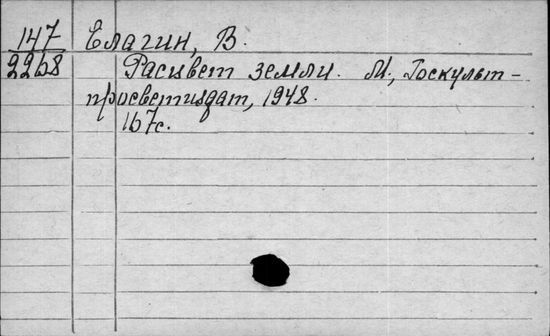 147 Елагин, В.
2268 Расцвет земли. М., Госкульт-
просветиздат, 1948.
167с.